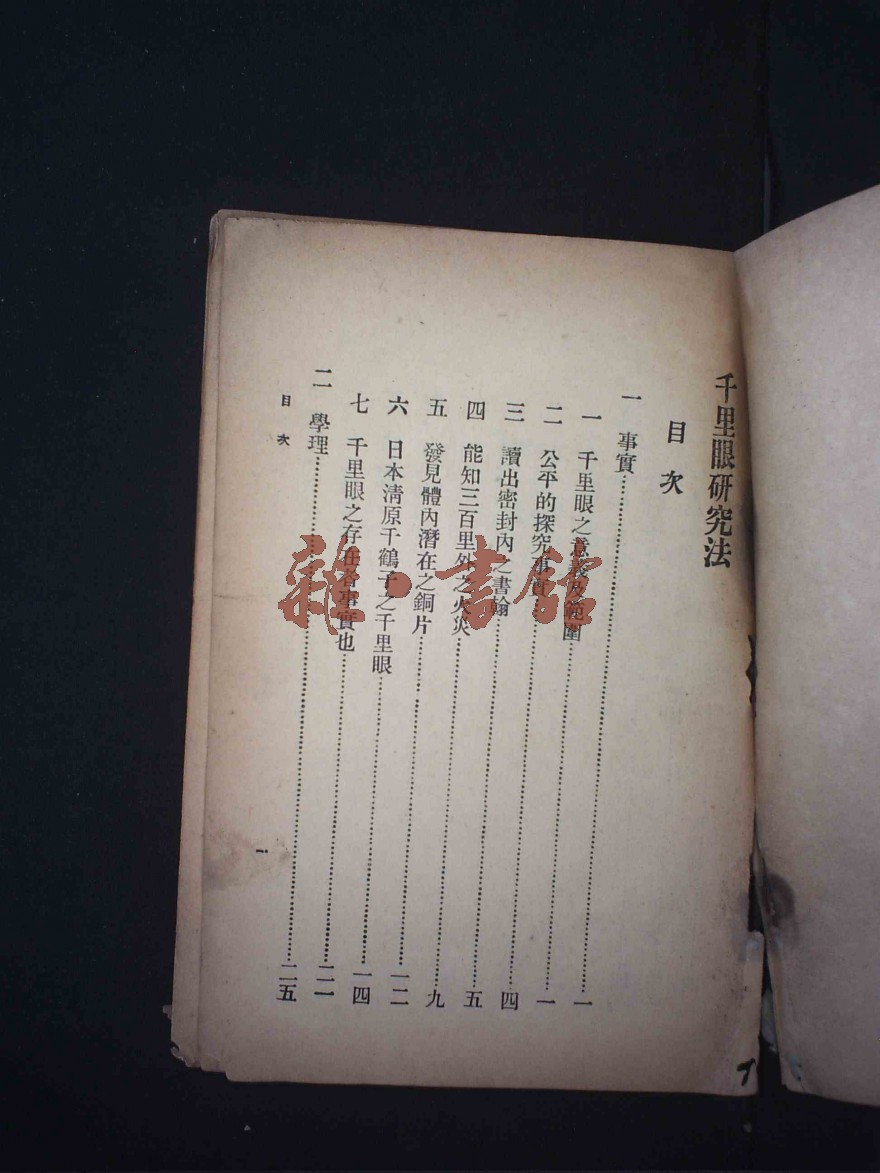 千里眼研究法
目次
一 事實……一
一 千里眼之意義及範圍……一
二 公平的探究事實……四
三 讀出密封內之書翰……五
四 能知三百里外之火災……九
五 發見體內潛在之銅片……一二
六 日本清原千鶴子之千里眼……一四
七 千里眼之存在者事實也……二一
二 學理……二五
目次
一
雜·書館